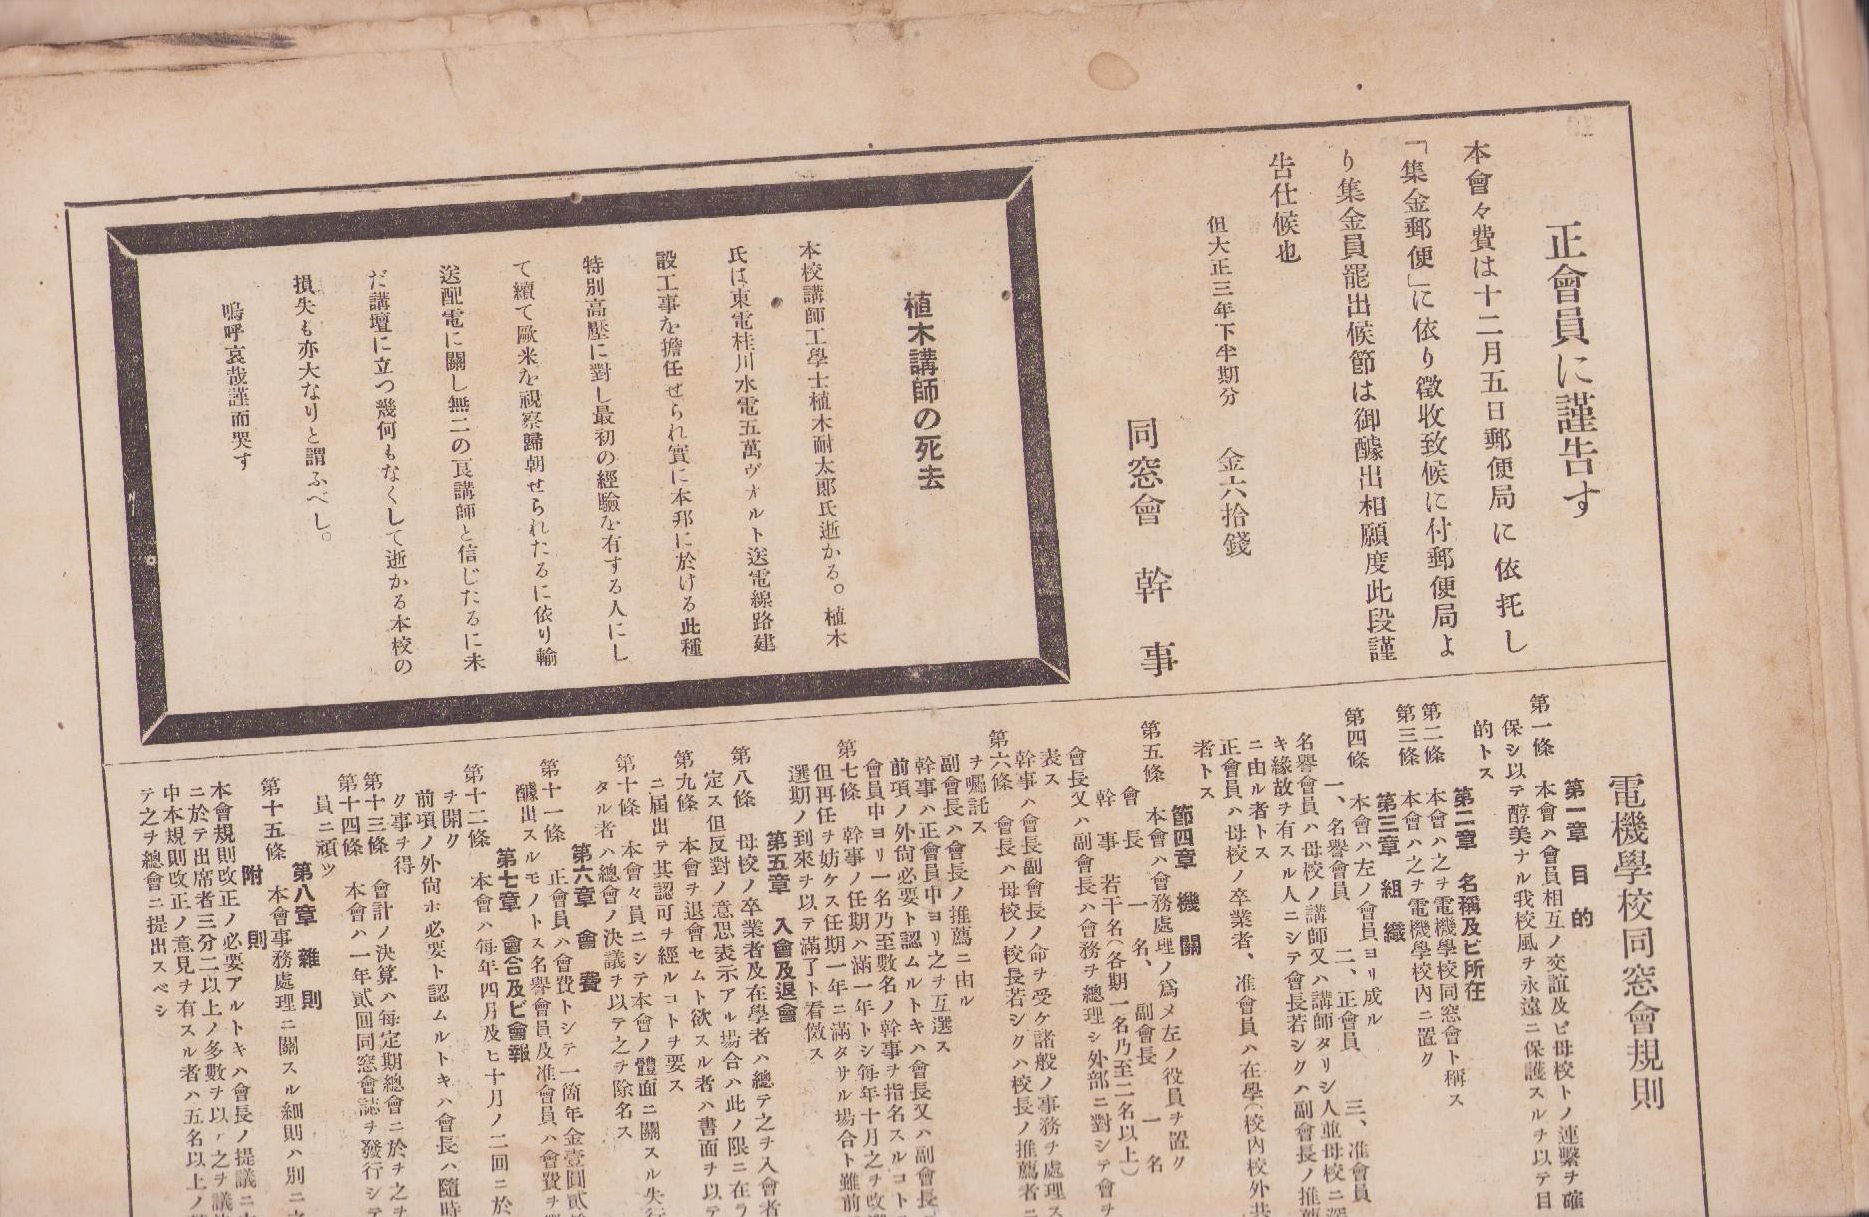 正會員に謹告す
本會々費は十二月五日郵便局に依托し
「集金郵便」に依り徴收致候に付郵便局よ
り集金員罷出候節は御醵出相願度此段謹
告仕候也
但大正三年下半期分 金六拾錢
同窓會 幹事
植木講師の死去
本校講師工學士植木耐太郞氏逝かる。植木
氏は東電桂川水電五萬ヴォルト送電線路建
設工事を擔任せられ實に本邦に於ける此種
特別高壓に對し最初の經驗を有する人にし
て續て歐米を視察歸朝せられたるに依り輸
送配電に關し無二の良講師と信じたるに未
だ講壇に立つ幾何もなくして逝かる本校の
損失も亦大なりと謂ふべし。
嗚呼哀哉謹而哭す
電機學校同窓會規則
第一章 目的
第一條 本會ハ會員相互ノ交誼及ビ母校トノ連繫ヲ確
保シ以テ醇美ナル我校風ヲ永遠ニ保護スルヲ以テ目
的トス
第二章 名稱及ビ所在
第二條 本會ハ之ヲ電機學校同窓會ト稱ス
第三條 本會ハ之ヲ電機學校內ニ置ク
第三章 組織
第四條 本會ハ左ノ會員ヨリ成ル
一、名譽會員 二、正會員 三、准會員
名譽會員ハ母校ノ講師又ハ講師タリシ人並母校ニ深
キ緣故ヲ有スル人ニシテ會長若シクハ副會長ノ推
ニ由ル者トス
正會員ハ母校ノ卒業者、准會員ハ在學(校內校外共
者トス
節四章 機關
第五條 本會ハ會務處理ノ爲メ左ノ役員ヲ置ク
會長 一名、 副會長 一名
幹事 若干名(各期一名乃至二名以上)
會長又ハ副會長ハ會務ヲ總理シ外部ニ對シテ會ヲ
表ス
幹事ハ會長副會長ノ命ヲ受ケ諸般ノ事務ヲ處理ス
第六條 會長ハ母校ノ校長若シクハ校長ノ推薦者ニ
ヲ囑託ス
副會長ハ會長ノ推薦ニ由ル
幹事ハ正會員中ヨリ之ヲ互選ス
前項ノ外尙必要ト認ムルトキハ會長又ハ副會長
會員中ヨリ一名乃至數名ノ幹事ヲ指名スルコト
第七條 幹事ノ任期ハ滿一年トシ每年十月之ヲ改
但再任ヲ妨ケス任期一年ニ滿タサル場合ト雖前
選期ノ到來ヲ以テ滿了ト看做ス
第五章 入會及退會
第八條 母校ノ卒業者及在學者ハ總テ之ヲ入會者
定ス但反對ノ意思表示アル場合ハ此ノ限ニ在ラ
第九條 本會ヲ退會セムト欲スル者ハ書面ヲ以テ
ニ届出テ其認可ヲ經ルコトヲ要ス
第十條 本會々員ニシテ本會ノ體面ニ關スル失
タル者ハ總會ノ決議ヲ以テ之ヲ除名ス
第六章 會費
第十一條 正會員ハ會費トシテ一箇年金壹圓貳
醵出スルモノトス名譽會員及准會員ハ會費ヲ
第七章 會合及ビ會報
第十二條 本會ハ每年四月及ヒ十月ノ二回ニ於
ヲ開ク
前項ノ外尙ホ必要ト認ムルトキハ會長ハ隨時
ク事ヲ得
第十三條 會計ノ決算ハ每定期總會ニ於テ之ヲ
第十四條 本會ハ一年貳回同窓會誌ヲ發行シテ
員ニ頒ツ
第八章 雜則
第十五條 本會事務處理ニ關スル細則ハ別ニ
附則
本會規則改正ノ必要アルトキハ會長ノ提議ニ
ニ於テ出席者三分二以上ノ多數ヲ以テ之ヲ議
中本規則改正ノ意見ヲ有スル者ハ五名以上ノ
テ之ヲ總會ニ提出スベシ